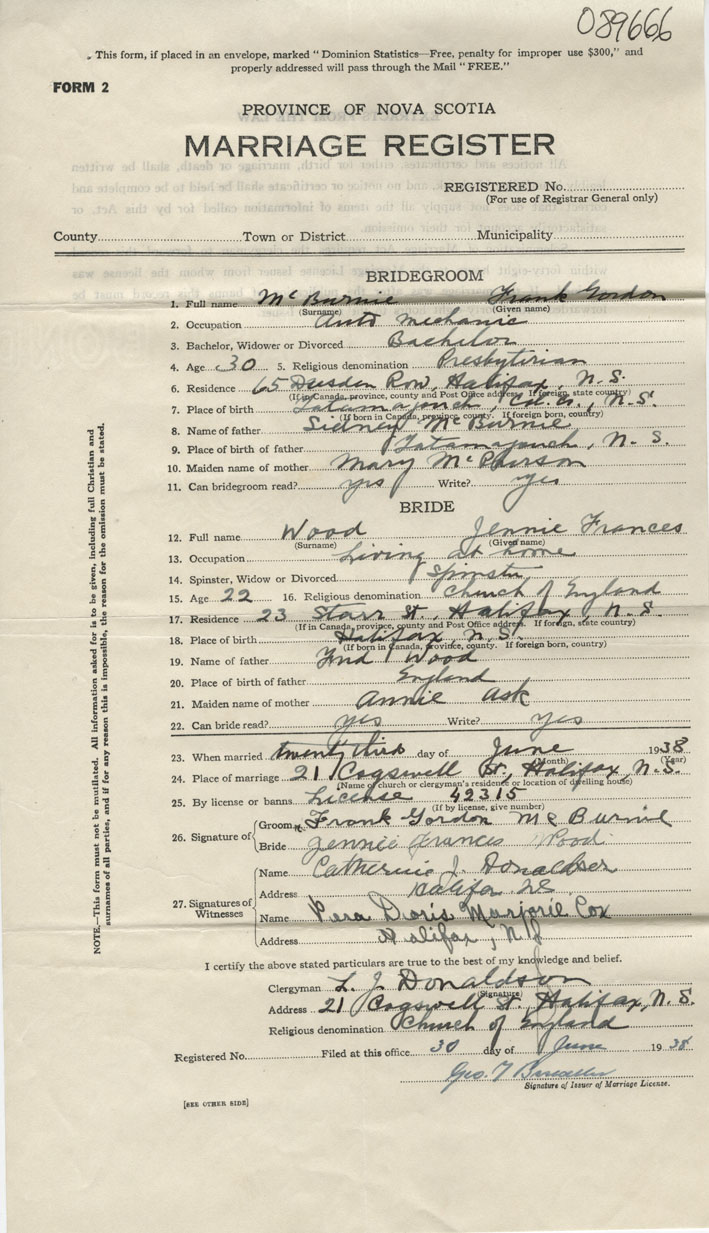 089666
This form, if placed in an envelope, marked "Dominion Statistics—Free, penalty for improper use $300," and
properly addressed will pass through the Mail "FREE."
FORM 2
PROVINCE OF NOVA SCOTIA
MARRIAGE REGISTER
REGISTERED No.
(For use of Registrar General only)
County Town or District Municipality
BRIDEGROOM
1. Full name McBurnie Frank Gordon
(Surname) (Given name)
2. Occupation Auto mechanic
3. Bachelor, Widower or Divorced Bachelor
4. Age 30 5. Religious denomination Presbyterian
6. Residence 65 Dresden Row, Halifax, N.S.
(If in Canada, province, county and Post Office address. If foreign, state country)
7. Place of birth Tatamagouch, Col. Co., N.S.
(If born in Canada, province, county. If foreign born, country)
8. Name of father Sidney McBurnie
9. Place of birth of father Tatamagouch, N.S.
10. Maiden name of mother Mary McPherson
11. Can bridegroom read? yes Write? yes
BRIDE
12. Full name Wood Jennie Frances
(Surname) (Given name)
13. Occupation Living at home
14. Spinster, Widow or Divorced Spinster
15. Age 22 16. Religious denomination Church of England
17. Residence 23 Starr St., Halifax, N.S.
(If in Canada, province, county and Post Office address. If foreign, state country)
18. Place of birth Halifax, N.S.
(If born in Canada, province, county. If foreign born, country)
19. Name of father Fred Wood
20. Place of birth of father England
21. Maiden name of mother Annie Ask
22. Can bride read? yes Write? yes
23. When married twenty third day of June 1938
(Month) (Year)
24. Place of marriage 21 Cogswell St, Halifax, N.S.
(Name of church or clergyman's residence or location of dwelling house)
25. By license or banns License 42315
(If by license, give number)
26. Signature of Groom Frank Gordon McBurnie
Bride Jennie Frances Wood
27. Signatures of Witnesses
Name Catherine J. Donaldson
Address Halifax
Name Doris Marjorie Cox
Address Halifax, N.S.
I certify the above stated particulars are true to the best of my knowledge and belief.
Clergyman L. J. Donaldson
(Signature)
Address 21 Cogswell St. Halifax, N.S.
Religious denomination Church of England
Registered No. Filed at this office 30 day of June 1938
Geo. T
Signature of Issuer of Marriage License.
[SEE OTHER SIDE]
NOTE.—This form must not be mutilated. All information asked for is to be given, including full Christian and
surnames of all parties, and if for any reason this is impossible, the reason for the omission must be stated.